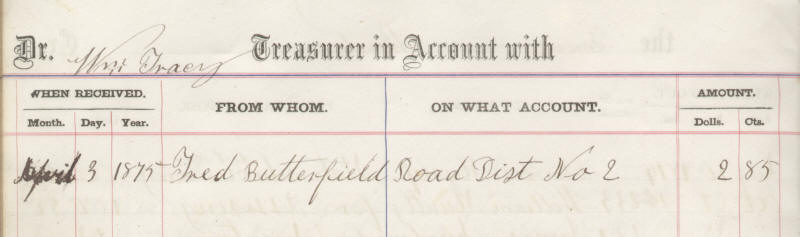 Dr. Wm Tracy Treasurer in Account with
WHEN RECEIVED. FROM WHOM. ON WHAT ACCOUNT. AMOUNT.
Month. Day. Year. Dolls. Cts.
April 3 1875 Fred Butterfield Road Dist No 2 2 85